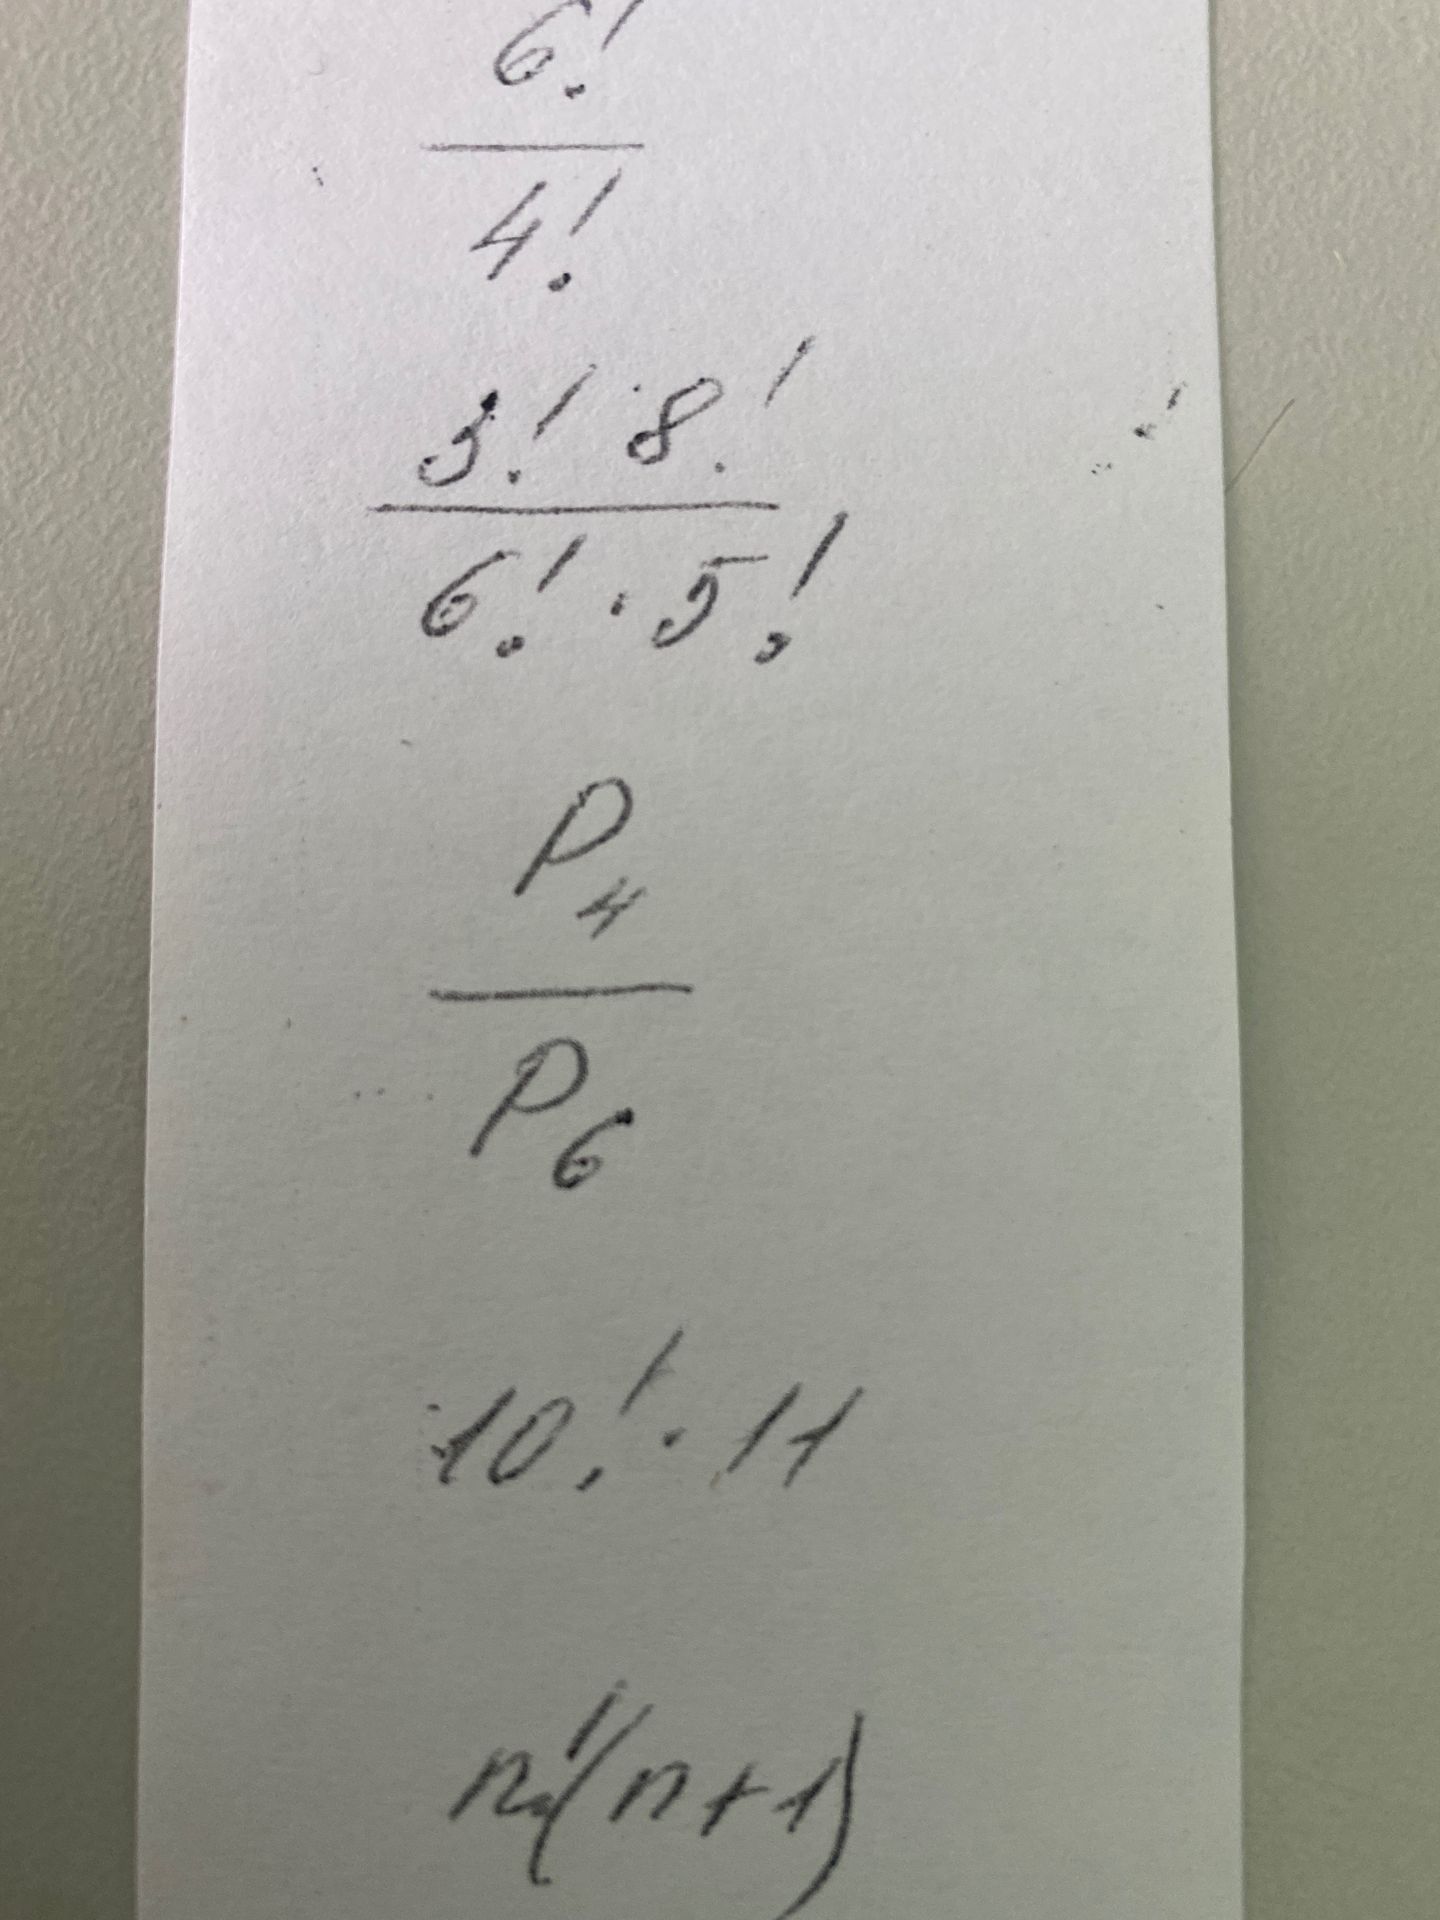 6!
4!
3! 8!
6! · 5!
P₄
P₆
10! · 11
n!(n+1)